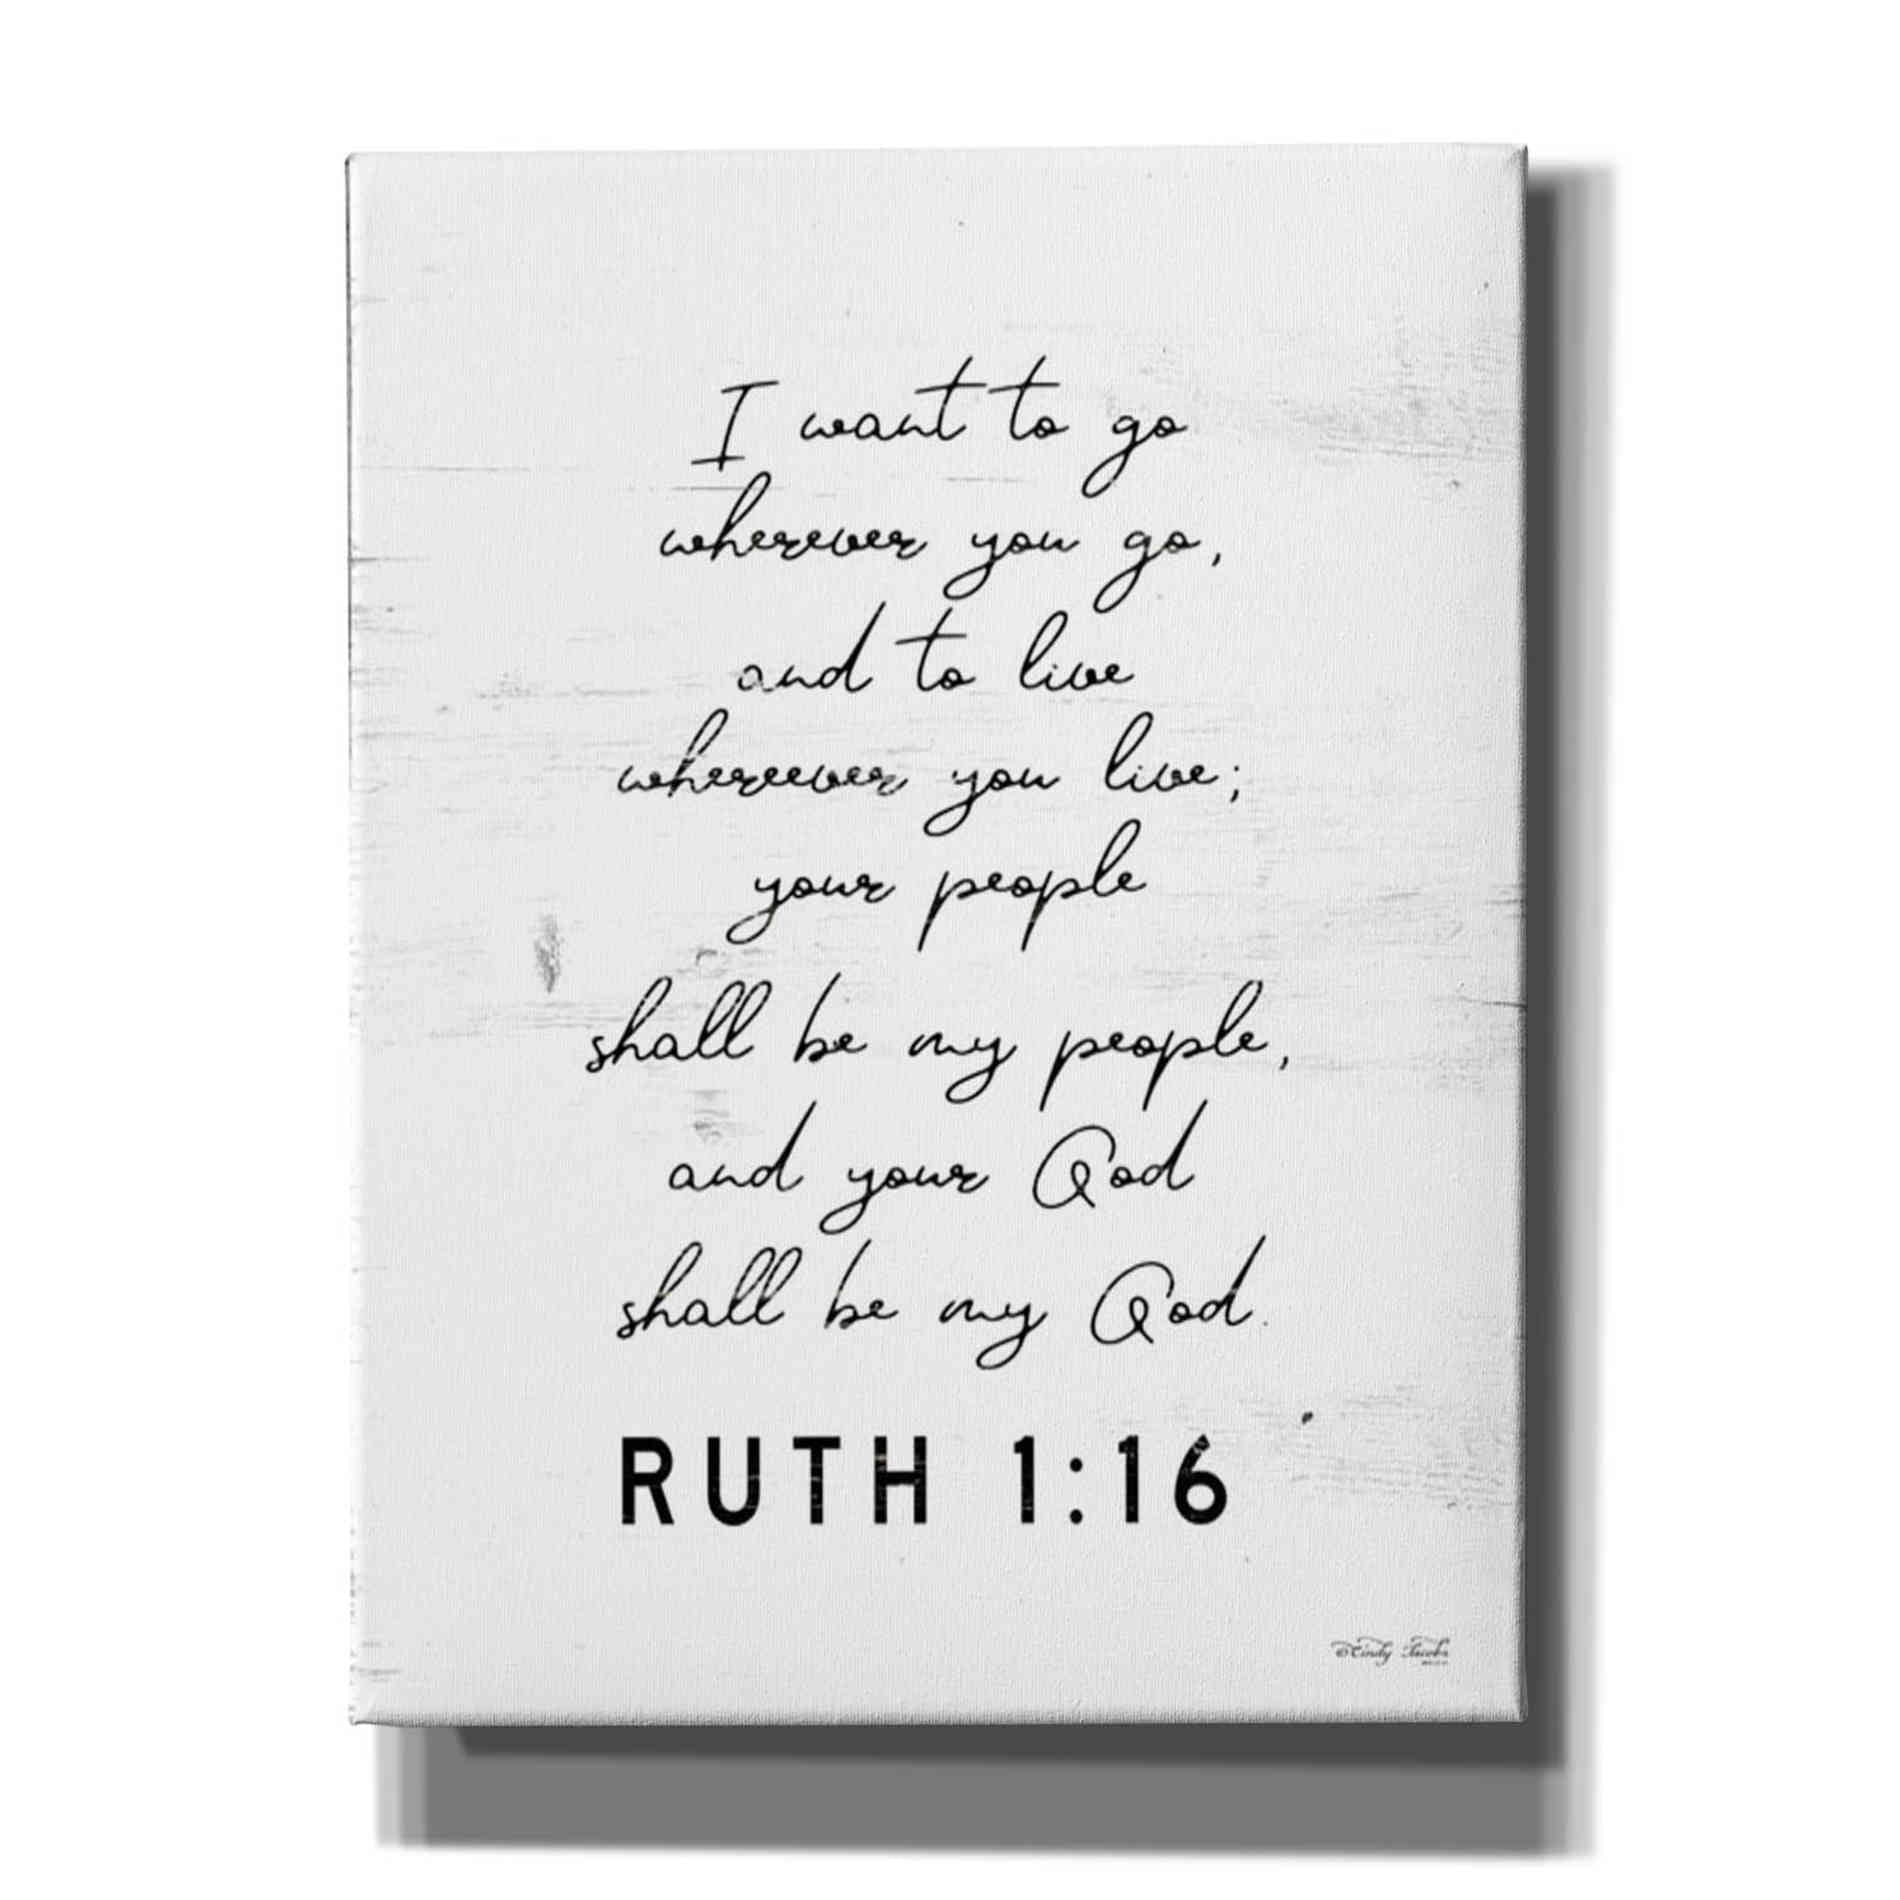 I want to go
wherever you go,
and to live
whereever you live;
your people
shall be my people,
and your God
shall be my God.
RUTH 1:16
©Cindy Jacobs